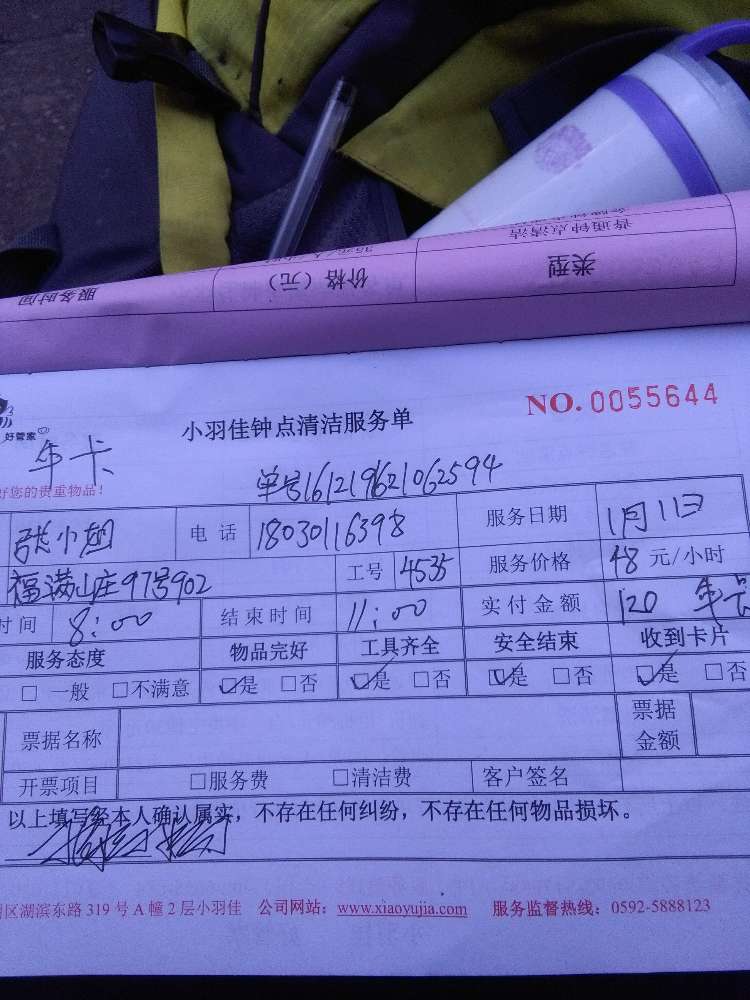 普通钟点清洁
类型
价格（元）
服务时间
NO. 0055644
好管家
小羽佳钟点清洁服务单
年卡
单号161219621062594
好您的贵重物品！
电 话 18030116398 服务日期 1月11日
福满山庄97号902 工号 4535 服务价格 48 元/小时
时 间 8：00 结束时间 11：00 实付金额 120 年卡
服务态度 物品完好 工具齐全 安全结束 收到卡片
□ 一般 □不满意 ☑是 □否 ☑是 □否 ☑是 □否 ☑是 □否
票据名称 票据金额
开票项目 □服务费 □清洁费 客户签名
以上填写经本人确认属实，不存在任何纠纷，不存在任何物品损坏。
区湖滨东路 319 号 A 幢 2 层小羽佳 公司网站：www.xiaoyujia.com 服务监督热线：0592-5888123